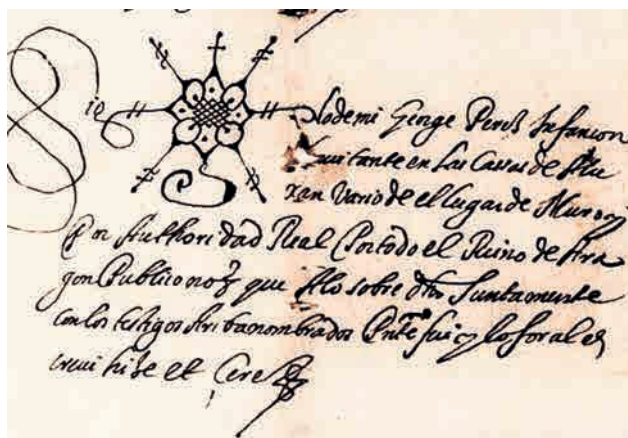 Sig no de mi Genge Perez Infançon
havitante en Las Cassas de
xan Vario de el lugar de Muro y
Por Authoridad Real Por todo el Reino de Ara
gon Publico no que A lo sobre dho Juntamente
con los testigos Arriba nombrados y lo foral es
crevi hize et Cere